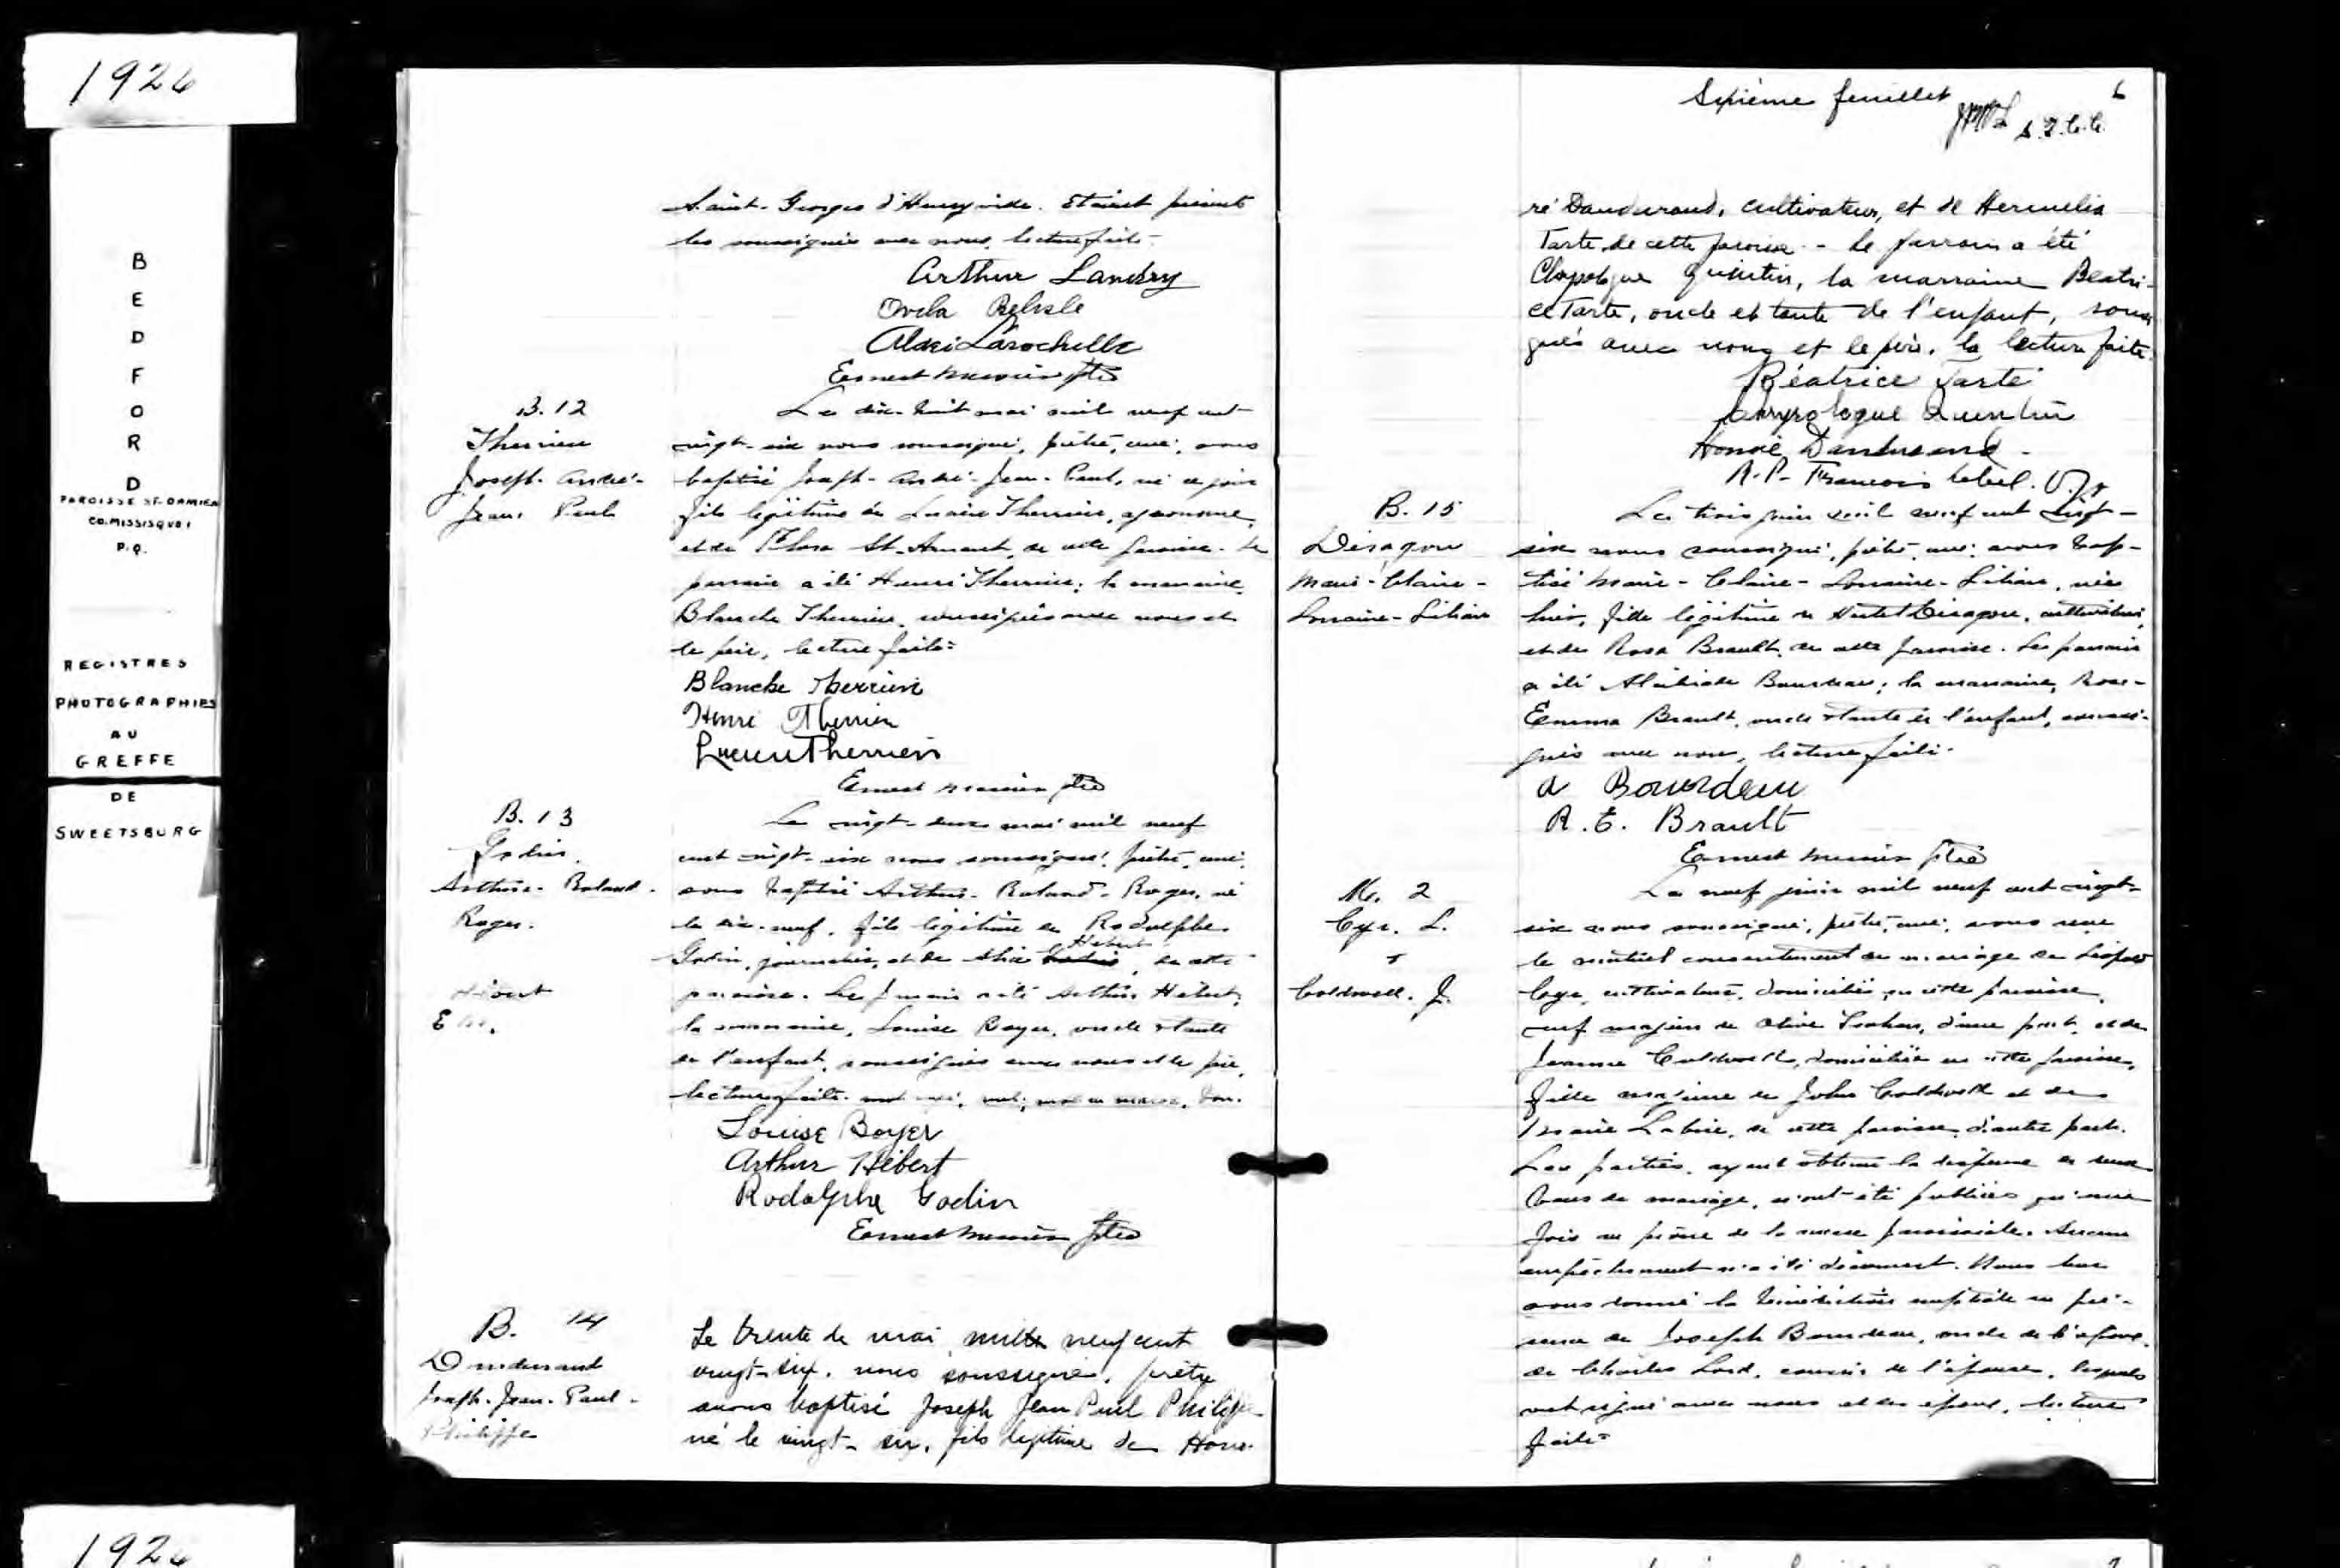 1926
B
E
D
F
O
R
D
PAROISSE ST-DAMIEN
CO. MISSISQUOI
P.Q.
REGISTRES
PHOTOGRAPHIES
AU
GREFFE
DE
SWEETSBURG
1926
Saint-Georges d'Henryville. Etaient présents
les soussignés avec nous, lecture faite.
Arthur Landry
Ovila Belisle
Larochelle
Ernest ptre
B. 12
Therrien
Joseph-André-
Jean-Paul
Le dix-huit mai mil neuf cent
vingt-six nous soussigné, prêtre, curé, avons
baptisé Joseph-André-Jean-Paul, né ce jour
fils légitime de Lucien Therrien, agronome,
et de Flora St-Amant, de cette paroisse. Le
parrain a été Henri Therrien; la marraine,
Blanche Therrien, soussignés avec nous et
le père, lecture faite.
Blanche Therrien
Henri Therrien
Lucien Therrien
Ernest ptre
B. 13
Godin.
Arthur-Roland-
Roger.
Hébert
Le vingt-deux mai mil neuf
cent vingt-six nous soussigné, prêtre, curé,
avons baptisé Arthur-Roland-Roger, né
le dix-neuf, fils légitime de Rodolphe
Hébert
Godin, journalier, et de , de cette
paroisse. Le parrain a été Arthur Hébert,
la marraine, Louise Boyer, oncle et tante
de l'enfant, soussignés avec nous et le père,
lecture faite.
Louise Boyer
Arthur Hébert
Rodolphe Godin
Ernest ptre
B. 14
Dandurand
Joseph-Jean-Paul-
Philippe
Le trente de mai mille neuf cent
vingt-six, nous soussigné, prêtre
avons baptisé Joseph Jean Paul Philippe
né le vingt-six, fils légitime de Hono-
Sixième feuillet
6
ré Dandurand, cultivateur, et de Hermelia
Tarte de cette paroisse. - Le parrain a été
Quintin, la marraine Beatri-
ce Tarte, oncle et tante de l'enfant, soussi
gnés avec nous et le père, la lecture faite.
Béatrice Tarte
Quintin
Honoré Dandurand
R.P. François Lebel.
B. 15
Marie-Claire-
Lorraine-Liliane
Le trois juin mil neuf cent vingt-
six nous soussigné, prêtre, curé, avons bap-
tisé Marie-Claire-Lorraine-Liliane, née
hier, fille légitime de , cultivateur,
et de Rosa Brault, de cette paroisse. Le parrain
a été Bourdeau; la marraine, Rose-
Emma Brault, oncle et tante de l'enfant, soussi-
gnés avec nous, lecture faite.
A Bourdeau
R. E. Brault
Ernest ptre
M. 2
Cyr. L.
+
Coldwell. J.
Le neuf juin mil neuf cent vingt-
six nous soussigné, prêtre, curé, avons reçu
le mutuel consentement de mariage de Léopold
Cyr, cultivateur, domicilié en cette paroisse,
veuf majeur de Olive , d'une part, et de
Jeanne Coldwell, domiciliée en cette paroisse,
fille majeure de John Coldwell et de
Marie , de cette paroisse, d'autre part.
Les parties, ayant obtenu la dispense de deux
bans de mariage, n'ont été publiées qu'une
fois au prône de la messe paroissiale. Aucun
empêchement n'a été découvert. Nous leur
avons donné la bénédiction nuptiale en pré-
sence de Joseph Bourdeau, oncle de l'époux,
de Charles Lord, cousin de l'épouse, lesquels
ont signé avec nous et les époux, lecture
faite.